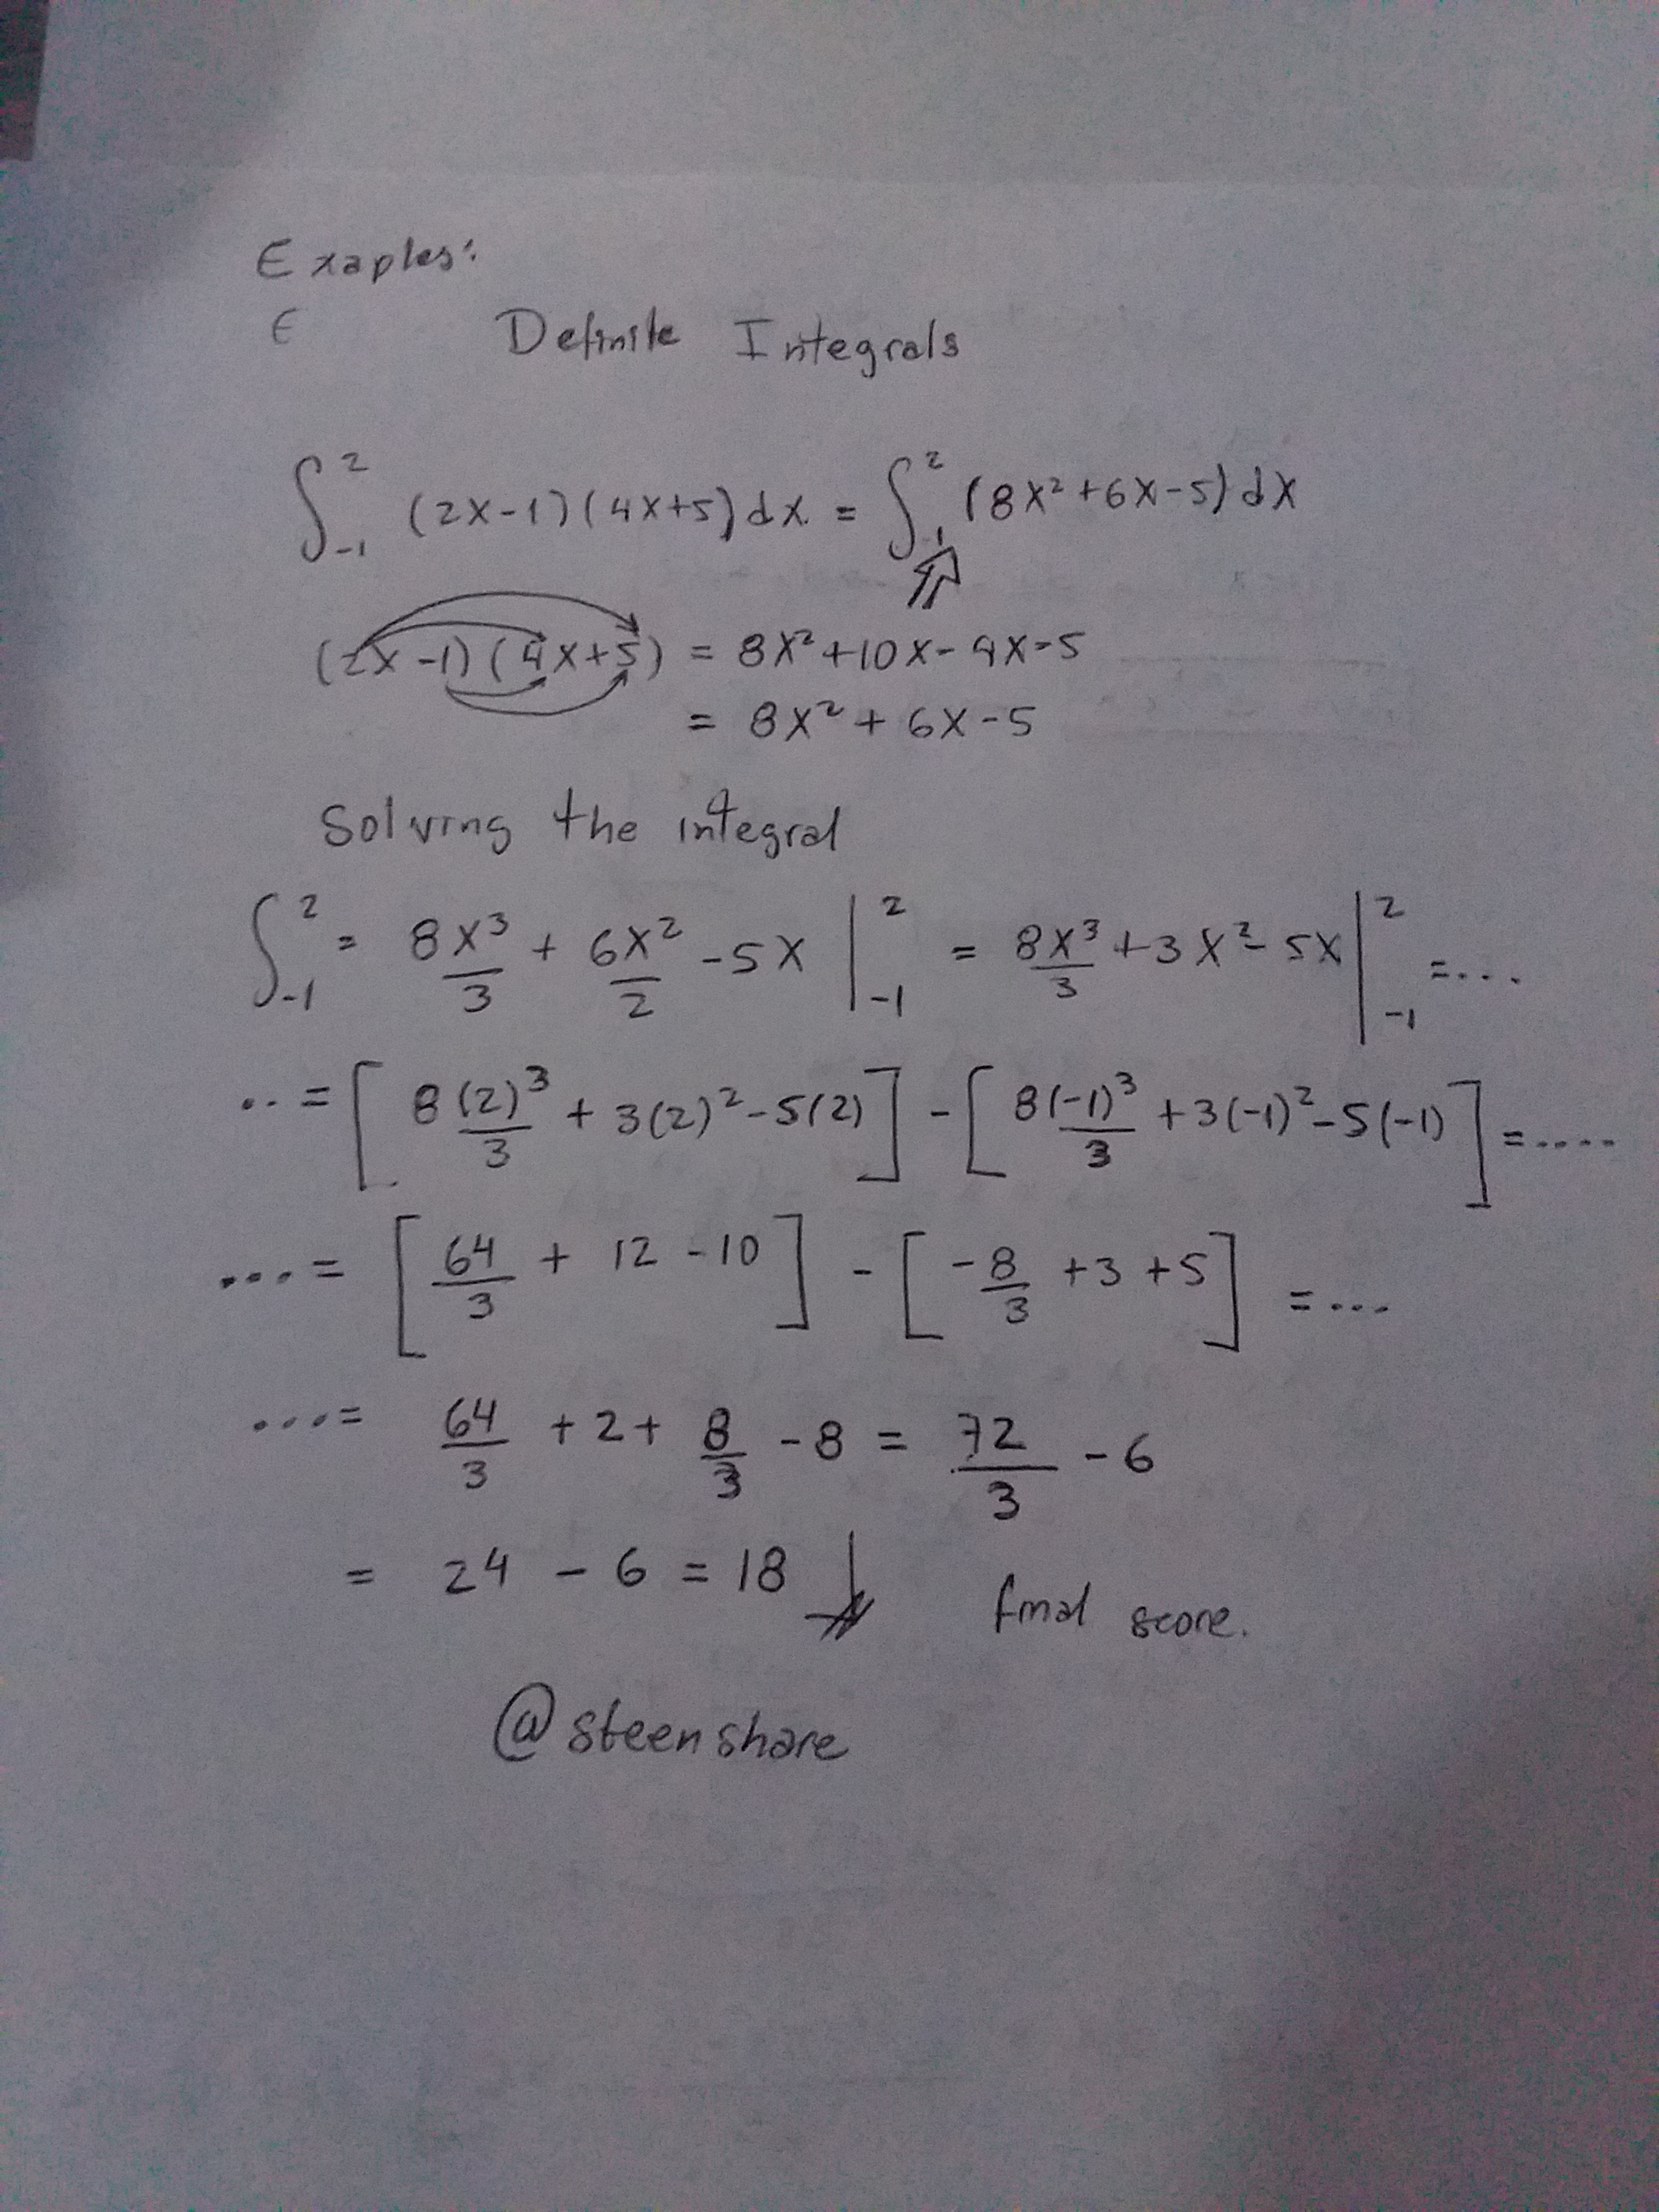 Exaples:
E
Definite Integrals
∫₋₁² (2x-1)(4x+5)dx = ∫₋₁² (8x²+6x-5)dx
(2x-1)(4x+5) = 8x²+10x-4x-5
= 8x²+6x-5
Solving the integral
∫₋₁² = 8x³/3 + 6x²/2 -5x |₋₁² = 8x³/3 +3x²-5x |₋₁² =...
..= [8(2)³/3 + 3(2)²-5(2)] - [8(-1)³/3 +3(-1)²-5(-1)] =....
...= [64/3 + 12 -10] - [-8/3 +3 +5] =...
...= 64/3 +2+ 8/3 -8 = 72/3 -6
= 24 - 6 = 18 final score.
@steenshare